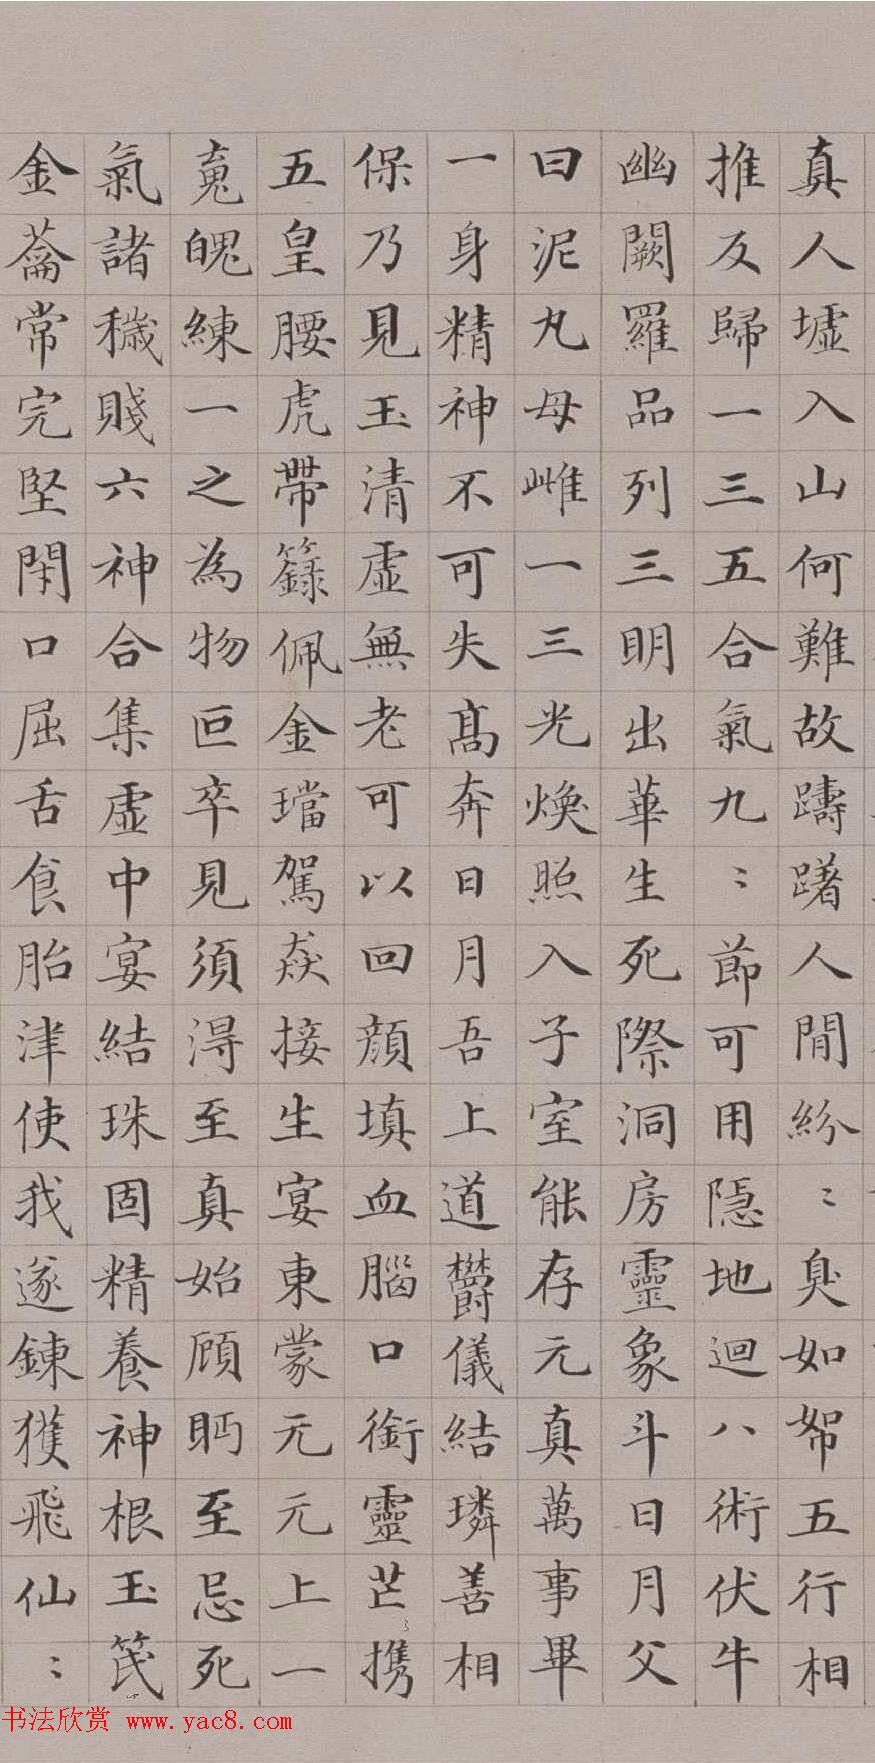 真人墟入山何難故躊躇人閒紛〻臭如帤五行相
推反歸一三五合氣九〻節可用隱地迴八術伏牛
幽闕羅品列三明出華生死際洞房靈象斗日月父
曰泥丸母雌一三光煥照入子室能存元真萬事畢
一身精神不可失高奔日月吾上道欝儀結璘善相
保乃見玉清虛無老可以回顔填血腦口銜靈芒携
五皇腰虎帶籙佩金璫駕焱接生宴東蒙元元上一
䰟魄練一之為物叵卒見須得至真始顧眄至忌死
氣諸穢賤六神合集虛中宴結珠固精養神根玉笢
金蘥常完堅閑口屈舌食胎津使我遂鍊獲飛仙〻
书法欣赏 www.yac8.com